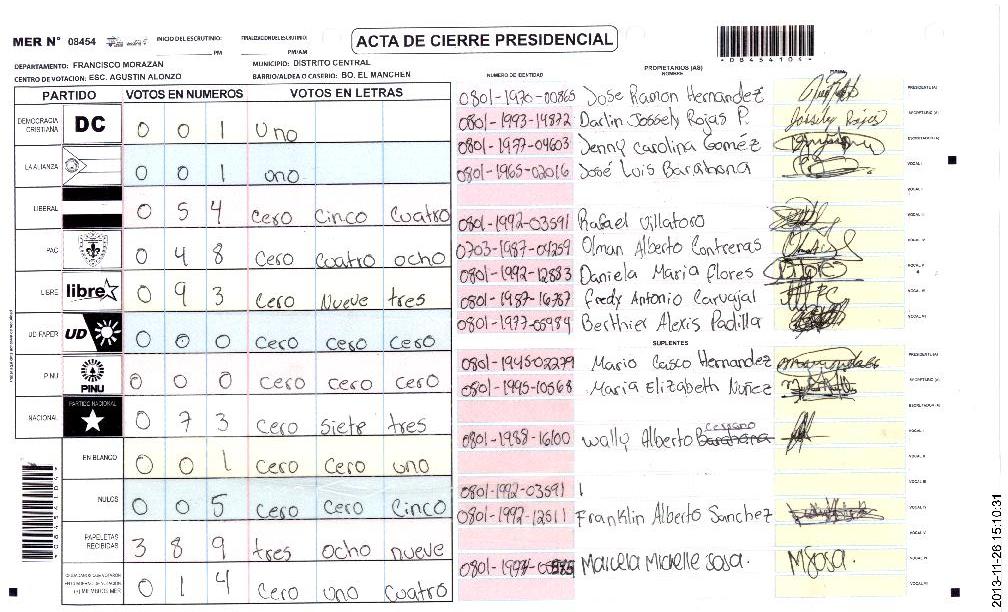 MER N° 08454 INICIO DEL ESCRUTINIO: PM FINALIZACION DEL ESCRUTINIO: PM/AM
ACTA DE CIERRE PRESIDENCIAL
*08454104*
DEPARTAMENTO: FRANCISCO MORAZAN MUNICIPIO: DISTRITO CENTRAL
CENTRO DE VOTACION: ESC. AGUSTIN ALONZO BARRIO/ALDEA O CASERIO: BO. EL MANCHEN
PARTIDO VOTOS EN NUMEROS VOTOS EN LETRAS
DEMOCRACIA CRISTIANA DC 0 0 1 Uno
LA ALIANZA 0 0 1 uno
LIBERAL 0 5 4 Cero Cinco Cuatro
PAC 0 4 8 Cero Cuatro ocho
LIBRE libre 0 9 3 Cero Nueve tres
UD-FAPER UD 0 0 0 Cero Cero Cero
PINU PINU 0 0 0 Cero Cero Cero
NACIONAL PARTIDO NACIONAL 0 7 3 Cero Siete tres
EN BLANCO 0 0 1 Cero Cero uno
NULOS 0 0 5 Cero Cero Cinco
PAPELETAS RECIBIDAS 3 8 9 tres ocho nueve
CIUDADANOS QUE VOTARON EN CUADERNO DE VOTACION (+) MIEMBROS MER 0 1 4 Cero uno Cuatro
NUMERO DE IDENTIDAD PROPIETARIOS (AS) NOMBRE FIRMA
0801-1970-00865 Jose Ramon Hernandez PRESIDENTE (A)
0801-1993-14872 Darlin Jossely Rojas P. Jossely Rojas SECRETARIO (A)
0801-1977-04603 Jenny Carolina Gomez ESCRUTADOR (A)
0801-1965-02016 José Luis Barahona VOCAL I
VOCAL II
0801-1992-03591 Rafael Villatoro VOCAL III
0703-1987-04259 Olman Alberto Contreras VOCAL IV
0801-1992-12883 Daniela Maria flores VOCAL V
0801-1987-16787 fredy Antonio Carvajal VOCAL VI
0801-1977-05984 Berthier Alexis Padilla VOCAL VII
SUPLENTES
0801-1945-02279 Mario Casco Hernandez PRESIDENTE (A)
0801-1995-10568 Maria Elizabeth Nuñez SECRETARIO (A)
ESCRUTADOR (A)
0801-1988-16100 Wally Alberto Barahona VOCAL I
VOCAL II
0801-1992-03591 VOCAL III
0801-1992-12511 Franklin Alberto Sanchez VOCAL IV
VOCAL V
Marcela Michelle Sosa. MSosa. VOCAL VI
VOCAL VII
2013-11-26 15:10:31